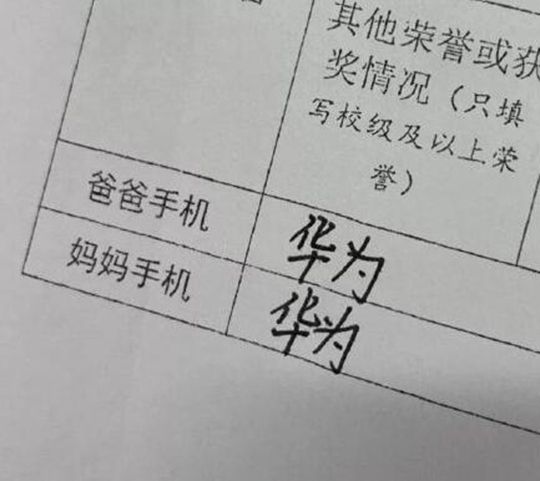 其他荣誉或获
奖情况（只填
写校级及以上荣
誉）
爸爸手机 华为
妈妈手机 华为